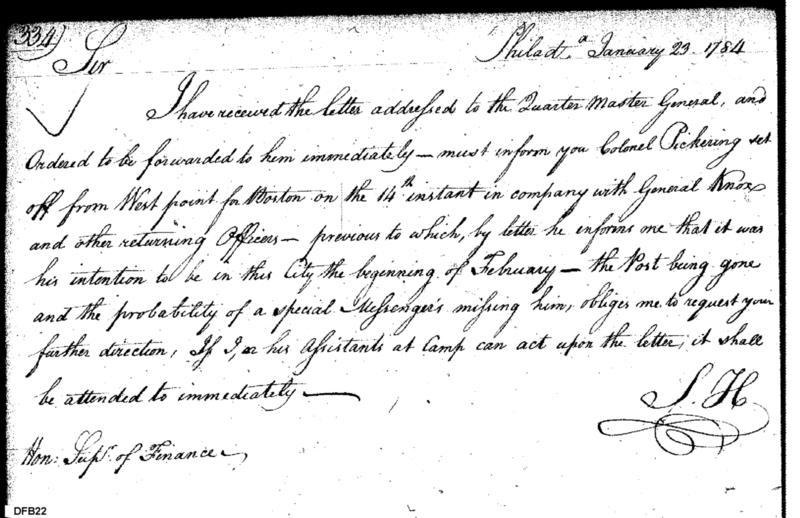 334)
Philad.a January 23. 1784
Sir
I have received the letter addressed to the Quarter Master General, and
Ordered to be forwarded to him immediately — must inform you Colonel Pickering set
off from West point for Boston on the 14th instant in company with General Knox
and other returning Officers — previous to which, by letter he informs me that it was
his intention to be in this City the beginning of February — the Post being gone
and the probability of a special Messenger's missing him, obliges me to request your
further direction, If I, or his Assistants at Camp can act upon the letter, it shall
be attended to immediately —
S. H
Hon: Supt. of Finance
DFB22